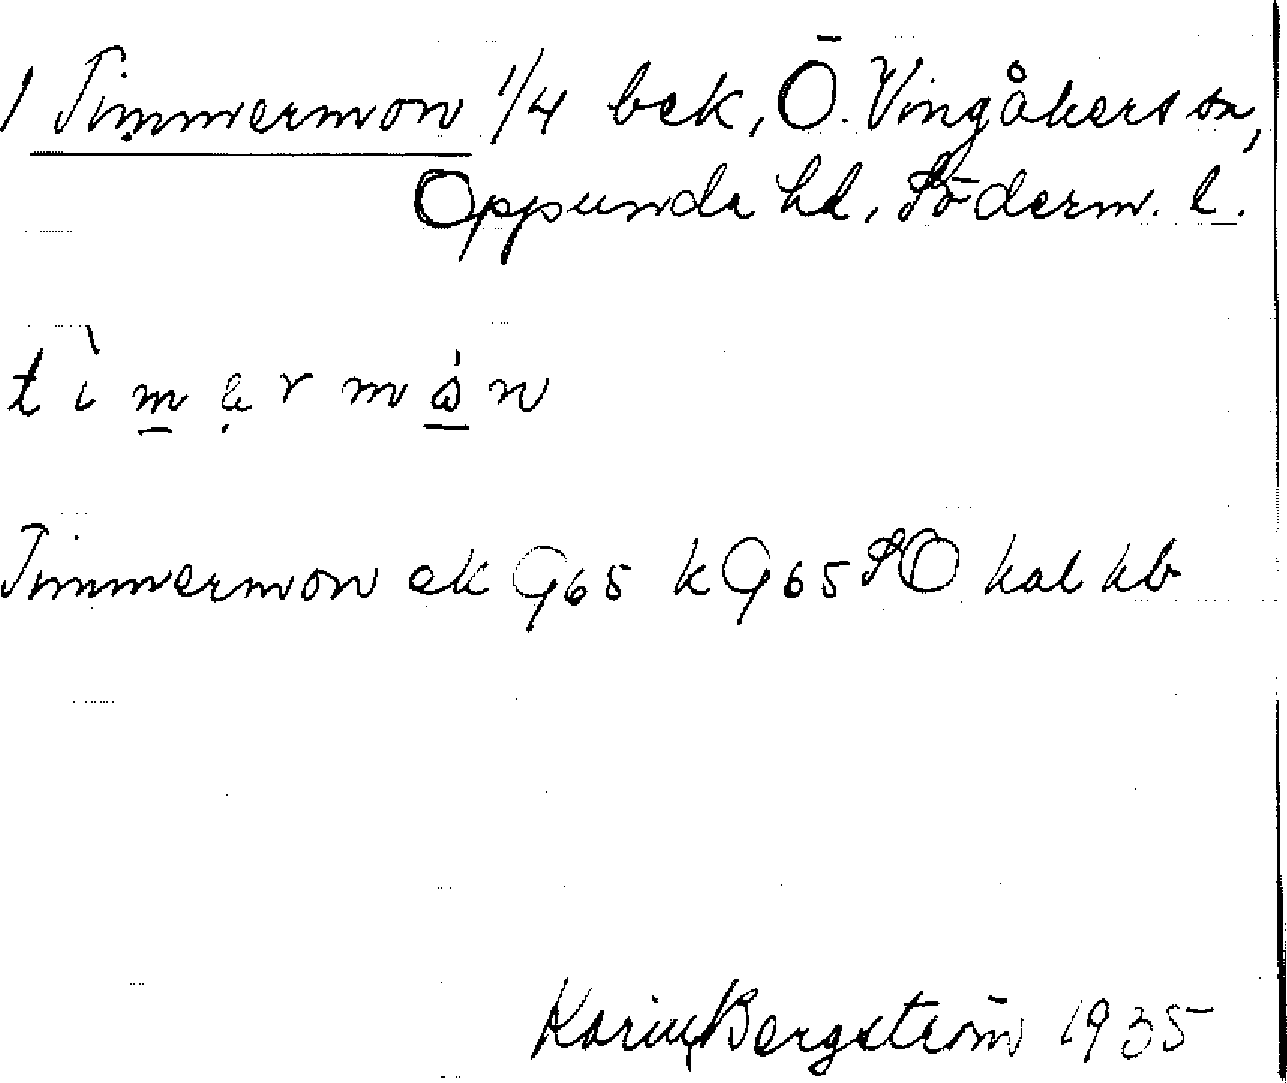 1 Timmermon 1/4 bek, Ö. Vingåkers sn,
Oppunda hd, Söderm. l.
t ì m e r m å n
Timmermon ek G65 k G65 SO kal kb
Karin Bergström 1935